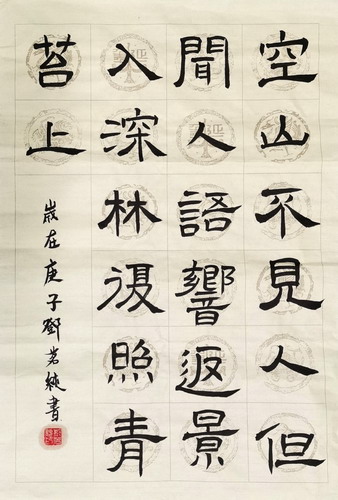 空山不見人但
聞人語響返景
入深林復照青
苔上
歲在庚子鄧書